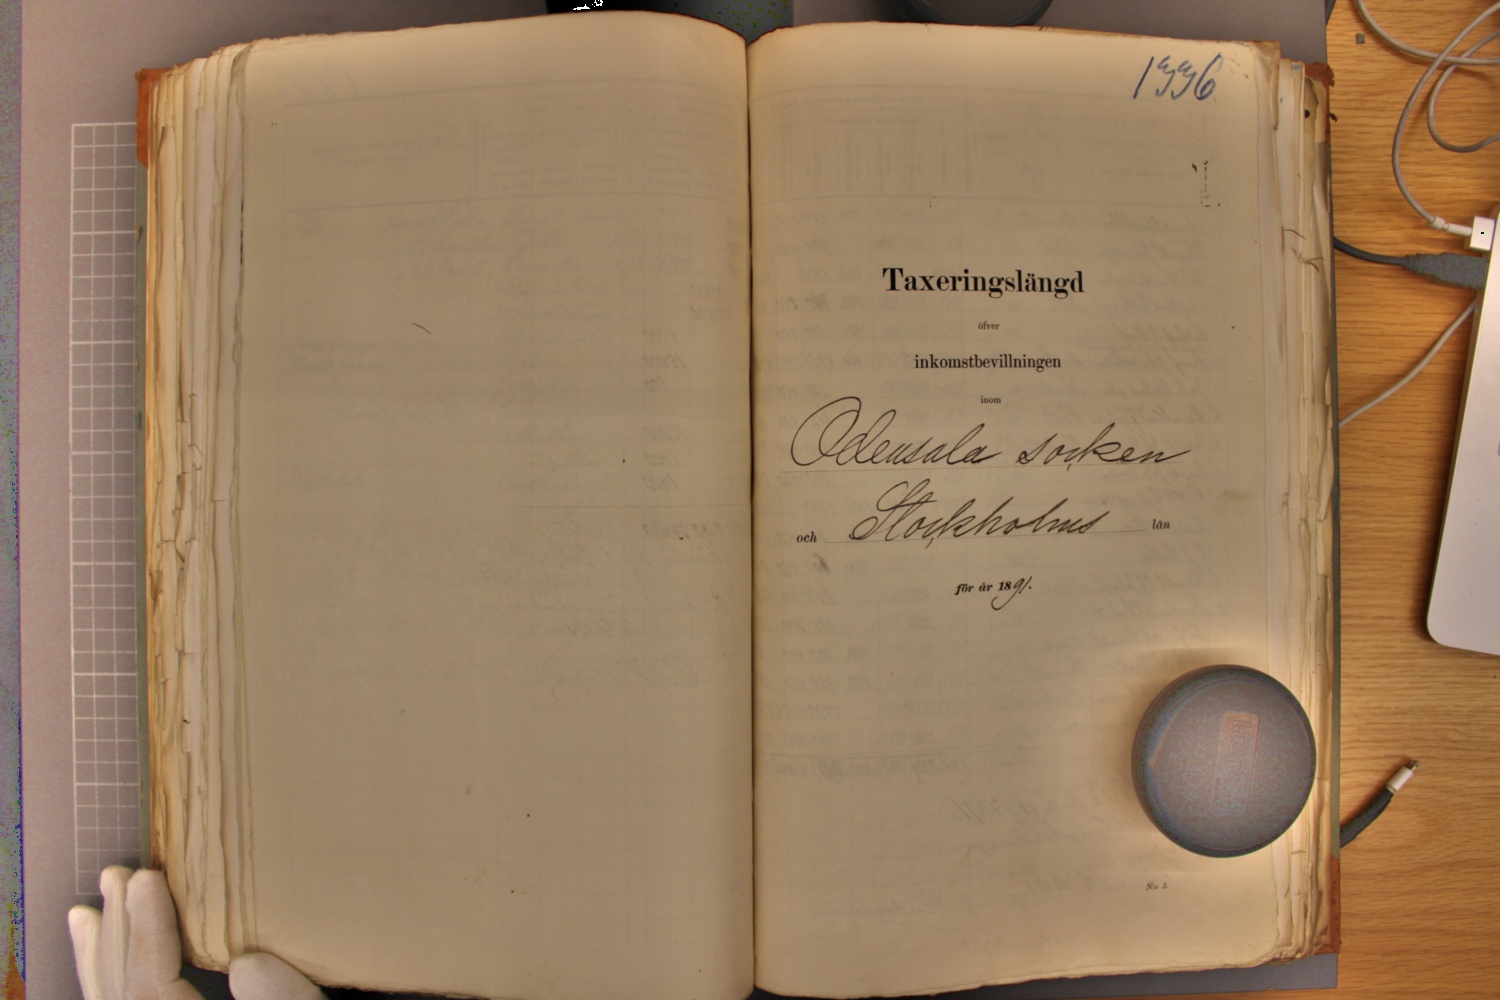 1336
Taxeringslängd
öfver
inkomstbevillningen
inom
Odensala socken
och Stockholms län
för år 1891.
No 3.